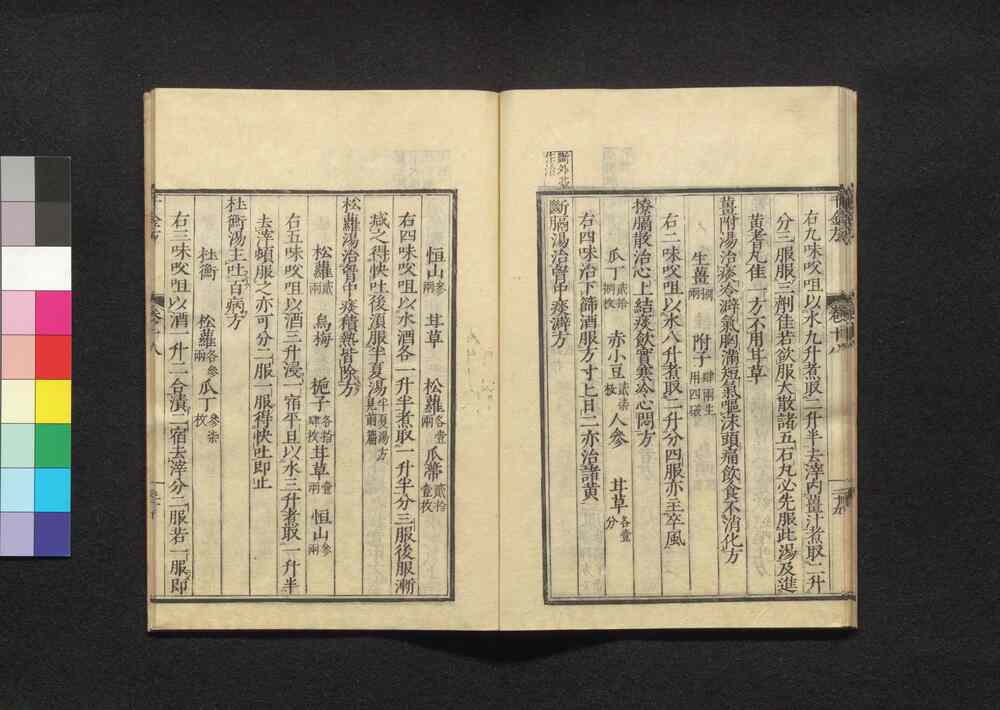 右九味㕮咀以水九升煮取二升半去滓內薑汁煮取二升
分三服服三劑佳若欲服大散諸五石丸必先服此湯及進
黃耆丸佳一方不用甘草
薑附湯治痰冷癖氣胸滿短氣嘔沫頭痛飲食不消化方
生薑捌兩 附子肆兩生用四破
右二味㕮咀以水八升煮取二升分四服亦主卒風
撩膈散治心上結痰飲實寒冷心悶方
瓜丁貳拾捌枚 赤小豆貳柒枚 人參 甘草各壹分
右四味治下篩酒服方寸匕日二亦治諸黃
斷膈湯治胷中痰澼方
恒山參兩 甘草 松蘿各壹兩 瓜蔕貳拾壹枚
右四味㕮咀以水酒各一升半煮取一升半分三服後服漸
减之得快吐後須服半夏湯半夏湯方見前篇
松蘿湯治胷中痰積熱皆除方
松蘿貳兩 烏梅 梔子各拾肆枚 甘草壹兩 恒山參兩
右五味㕮咀以酒三升浸一宿平旦以水三升煮取一升半
去滓頓服之亦可分二服一服得快吐即止
杜衡湯主吐百病方
杜衡 松蘿各參兩 瓜丁參柒枚
右三味㕮咀以酒一升二合漬二宿去滓分二服若一服即